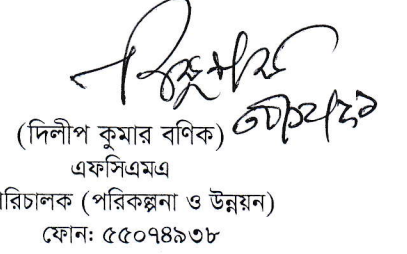 (দিলীপ কুমার বণিক)
এফসিএমএ
রিচালক (পরিকল্পনা ও উন্নয়ন)
ফোন: ৫৫০৭৪৯৩৮